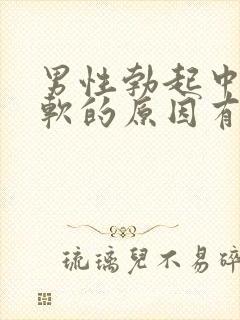 男性勃起中
軟的原因有
琉璃兒不易碎